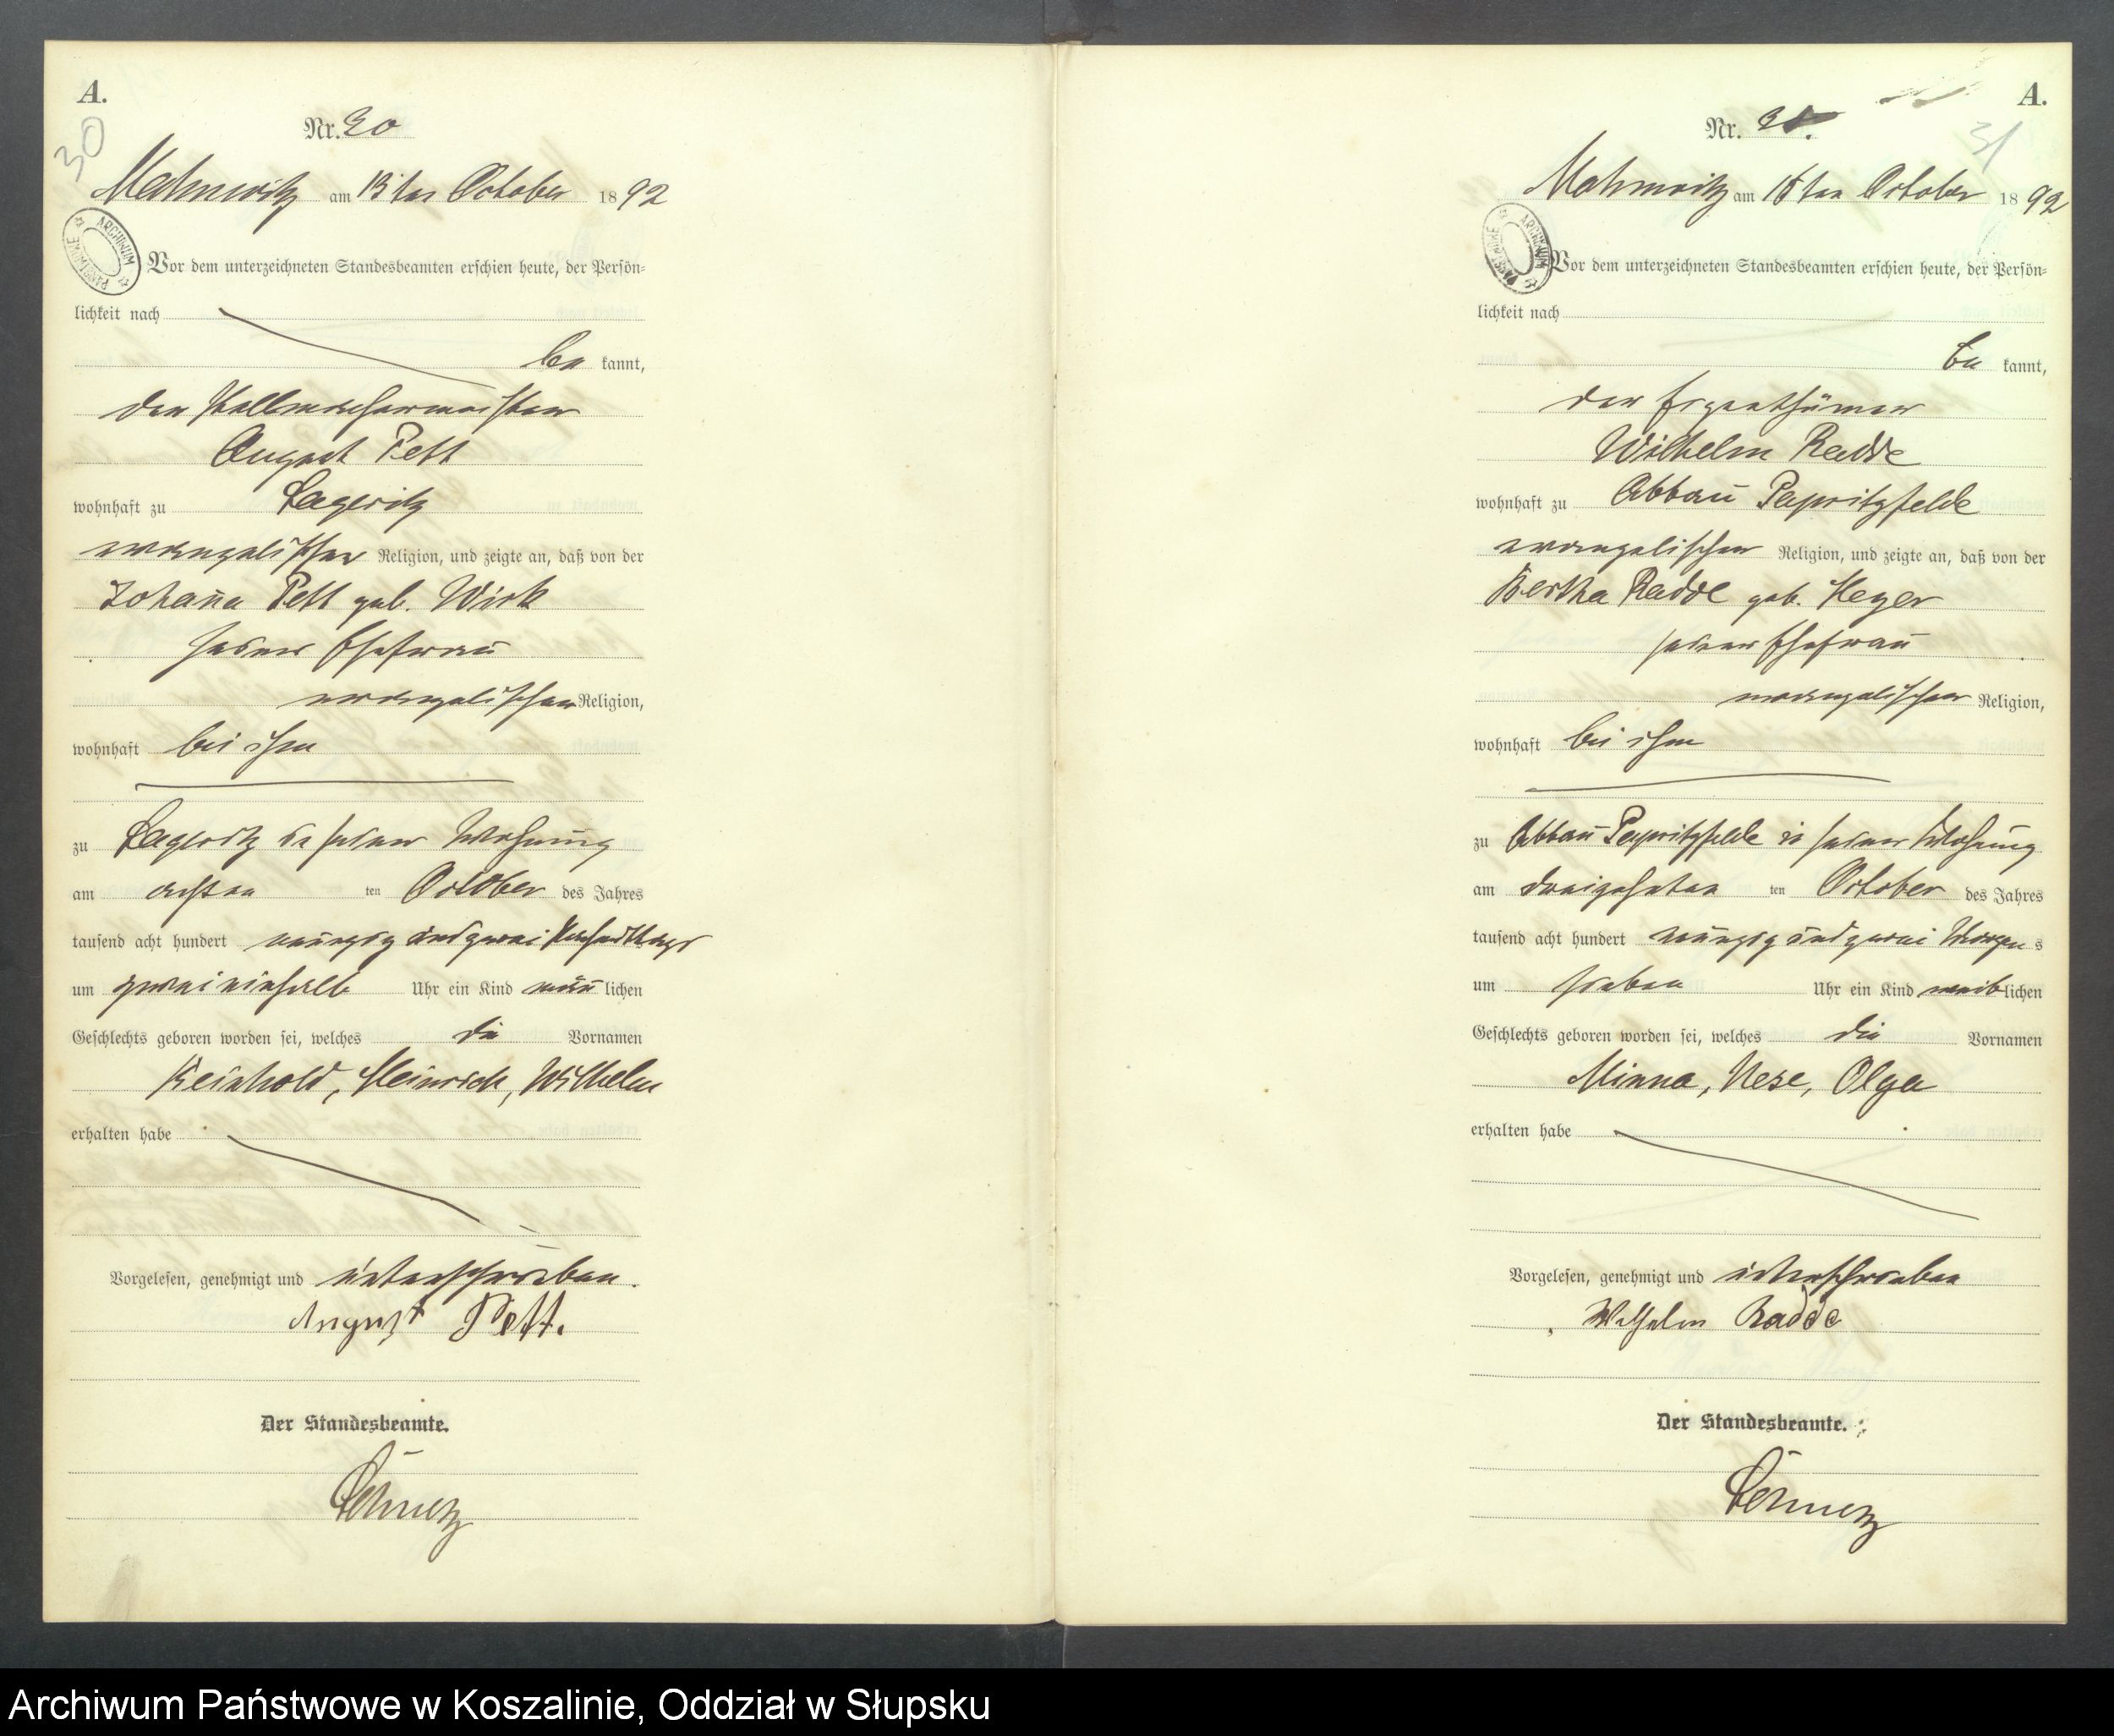 A.
30
Nr. 30
Mahnwitz am 13ten October 1892
ARCHIWUM PAŃSTWOWE
Vor dem unterzeichneten Standesbeamten erschien heute, der Persön=
lichkeit nach
be kannt,
der Stellmachermeister
August Pett
wohnhaft zu
evangelischer Religion, und zeigte an, daß von der
Johanna Pett geb. Wirk
seiner Ehefrau
evangelischer Religion,
wohnhaft bei ihm
zu in seiner Wohnung
am achten ten October des Jahres
tausend acht hundert neunzig und zwei Nachmittags
um zweieinhalb Uhr ein Kind männ lichen
Geschlechts geboren worden sei, welches die Vornamen
Reinhold, Heinrich, Wilhelm
erhalten habe
Vorgelesen, genehmigt und unterschrieben.
August Pett.
Der Standesbeamte.
A.
31
Nr. 31.
Mahnwitz am October 1892
ARCHIWUM PAŃSTWOWE
Vor dem unterzeichneten Standesbeamten erschien heute, der Persön=
lichkeit nach
be kannt,
der Eigenthümer
Wilhelm Radde
wohnhaft zu Abbau Papritzfelde
evangelischer Religion, und zeigte an, daß von der
Bertha Radde geb. Heyer
seiner Ehefrau
evangelischer Religion,
wohnhaft bei ihm
zu Abbau Papritzfelde in seiner Wohnung
am dreizehnten ten October des Jahres
tausend acht hundert neunzig und zwei Morgens
um sieben Uhr ein Kind weib lichen
Geschlechts geboren worden sei, welches die Vornamen
Minna, Olga
erhalten habe
Vorgelesen, genehmigt und unterschrieben
Wilhelm Radde
Der Standesbeamte.
Archiwum Państwowe w Koszalinie, Oddział w Słupsku